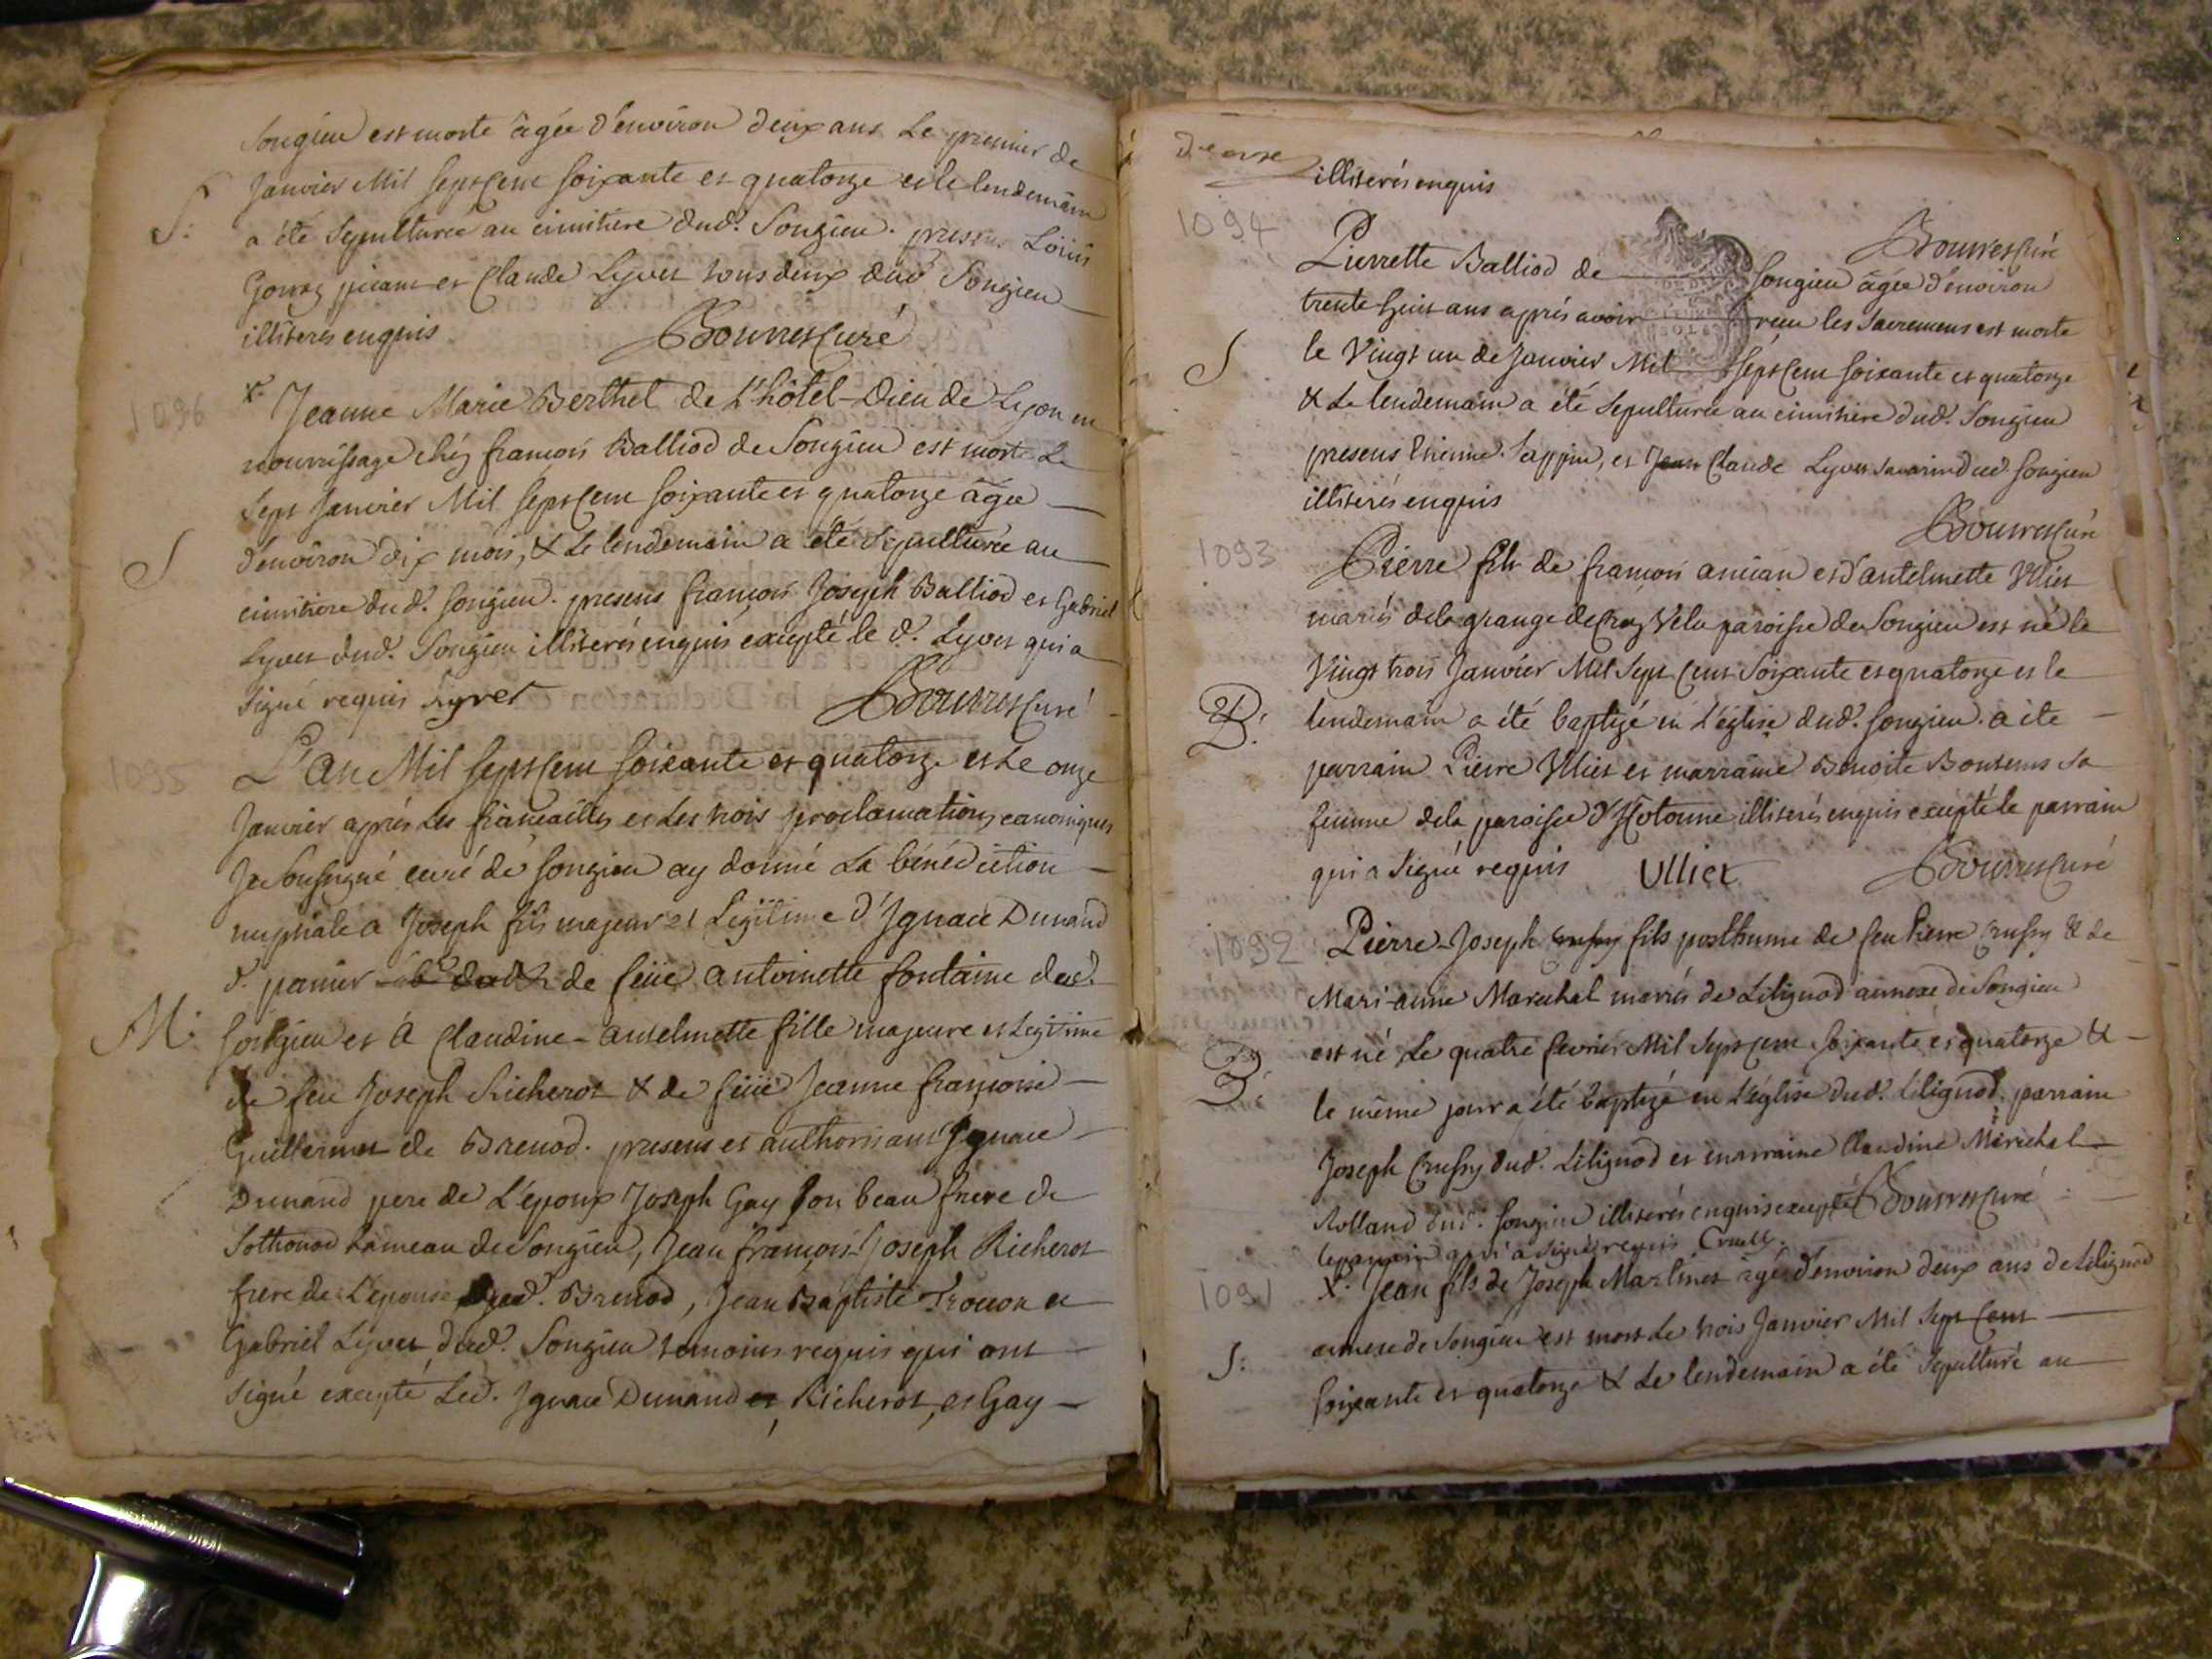 Songieu est morte âgée d'environ deux ans Le premier de
Janvier Mil Sept Cent Soixante et quatorze et le lendemain
S: a été Sepulturée au cimitière dud. Songieu. presens Loüis
Gonroz picant et Claude Lyvet tous deux dud Songieu
illiterés enquis Bouvret Curé
1096
x. Jeanne Marie Berthet de L'hôtel-Dieu de Lyon en
nourrissage chéz francois Balliod de Songieu est morte Le
Sept Janvier Mil Sept Cent Soixante et quatorze âgée
S d'environ dix mois, & Le lendemain a été Sepulturée au
cimitiere dud. Songieu. presens francois Joseph Balliod et Gabriel
Lyvet dud. Songieu illiterés enquis excepté le d. Lyvet qui a
Signé requis Lyvet Bouvret Curé
1095
L'an Mil Sept Cent Soixante et quatorze et Le onze
Janvier aprés Les fiancailles et Les trois proclamations canoniques
Je Soussigné curé de Songieu ay donné La bénédiction
nuptiale a Joseph fils majeur et Legitime d'Ignace Dunand
d. panier de feüe antoinette fontaine dud.
M: Songieu et à Claudine-antelmette fille majeure et Legitime
de feu Joseph Richerot & de feüe Jeanne francoise
Guillermet de Brenod. presens et authorisans Ignace
Dunand pere de L'époux Joseph Gay Son beau frere de
Sothonod hameau de Songieu, Jean francois Joseph Richerot
frere de L'épouse dud. Brenod, Jean Baptiste Trocon et
Gabriel Lyvet dud. Songieu temoins requis qui ont
Signé excepté Led. Ignace Dunand et Richerot, et Gay
illiterés enquis
Bouvret Curé
1094
Pierrette Balliod de Songieu âgée d'environ
trente huit ans aprés avoir recu les Sacremens est morte
S le Vingt un de Janvier Mil Sept Cent Soixante et quatorze
& Le lendemain a été Sepulturée au cimitiere dud. Songieu
presens Etienne Sappin, et Jean Claude Lyvet Savarin dud Songieu
illiterés enquis
Bouvret Curé
1093
Pierre fils de francois ancian et d'antelmette Ulliet
mariés dela grange de Craz Velu paroisse de Songieu est né le
Vingt trois Janvier Mil Sept Cent Soixante et quatorze et le
B: lendemain a été baptizé en L'église dud. Songieu. a été
parrain Pierre Ulliet et marraine Benoite Bontems Sa
femme dela paroisse d'Hotonne illiterés enquis excepté le parrain
qui a Signé requis Ulliet Bouvret Curé
1092
Pierre-Joseph Crussy fils posthume de feu Pierre Crussy & de
Mari-anne Marechal mariés de Lilignod annexe de Songieu
est né Le quatre fevrier Mil Sept Cent Soixante et quatorze &
B: le même jour a été baptizé en L'église dud. Lilignod. parrain
Joseph Crussy dud. Lilignod et marraine Claudine Maréchal
Rolland dud. Songieu illiterés enquis excepté Bouvret Curé
le parrain qui a Signé requis
1091
X. Jean fils de Joseph Martinet agé d'environ deux ans de Lilignod
annexe de Songieu est mort Le trois Janvier Mil Sept Cent
S: Soixante et quatorze & Le lendemain a été Sepulturé au